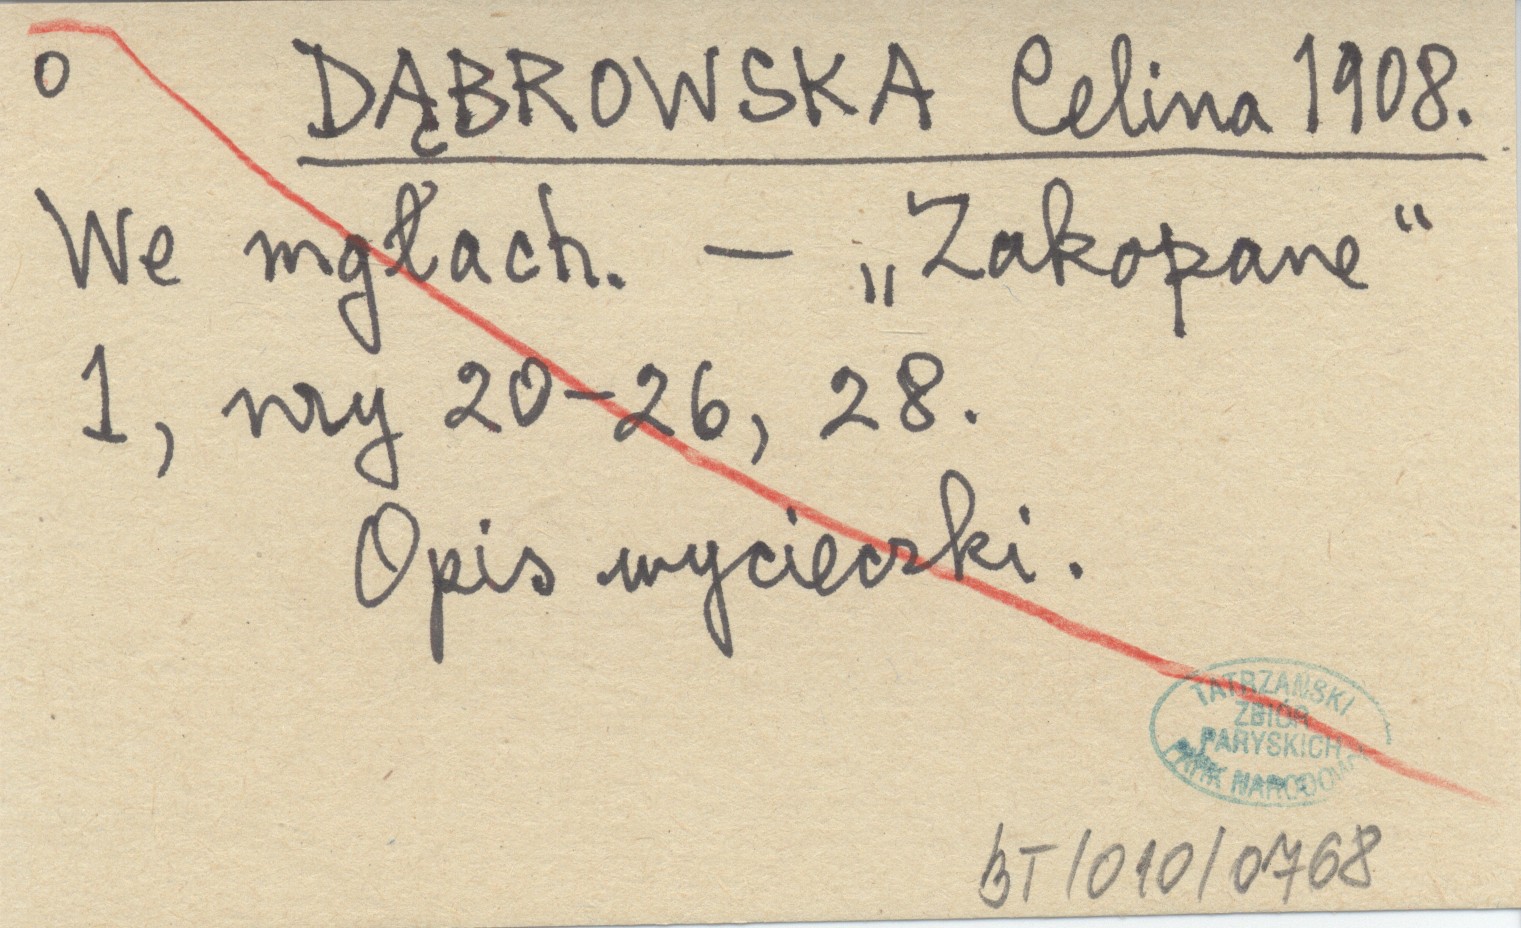 o DĄBROWSKA Celina 1908.
We mgłach. — „Zakopane“
1, nry 20-26, 28.
Opis wycieczki.
TATRZAŃSKI
ZBIÓR
PARYSKICH
PARK NARODOWY
BT/010/0768